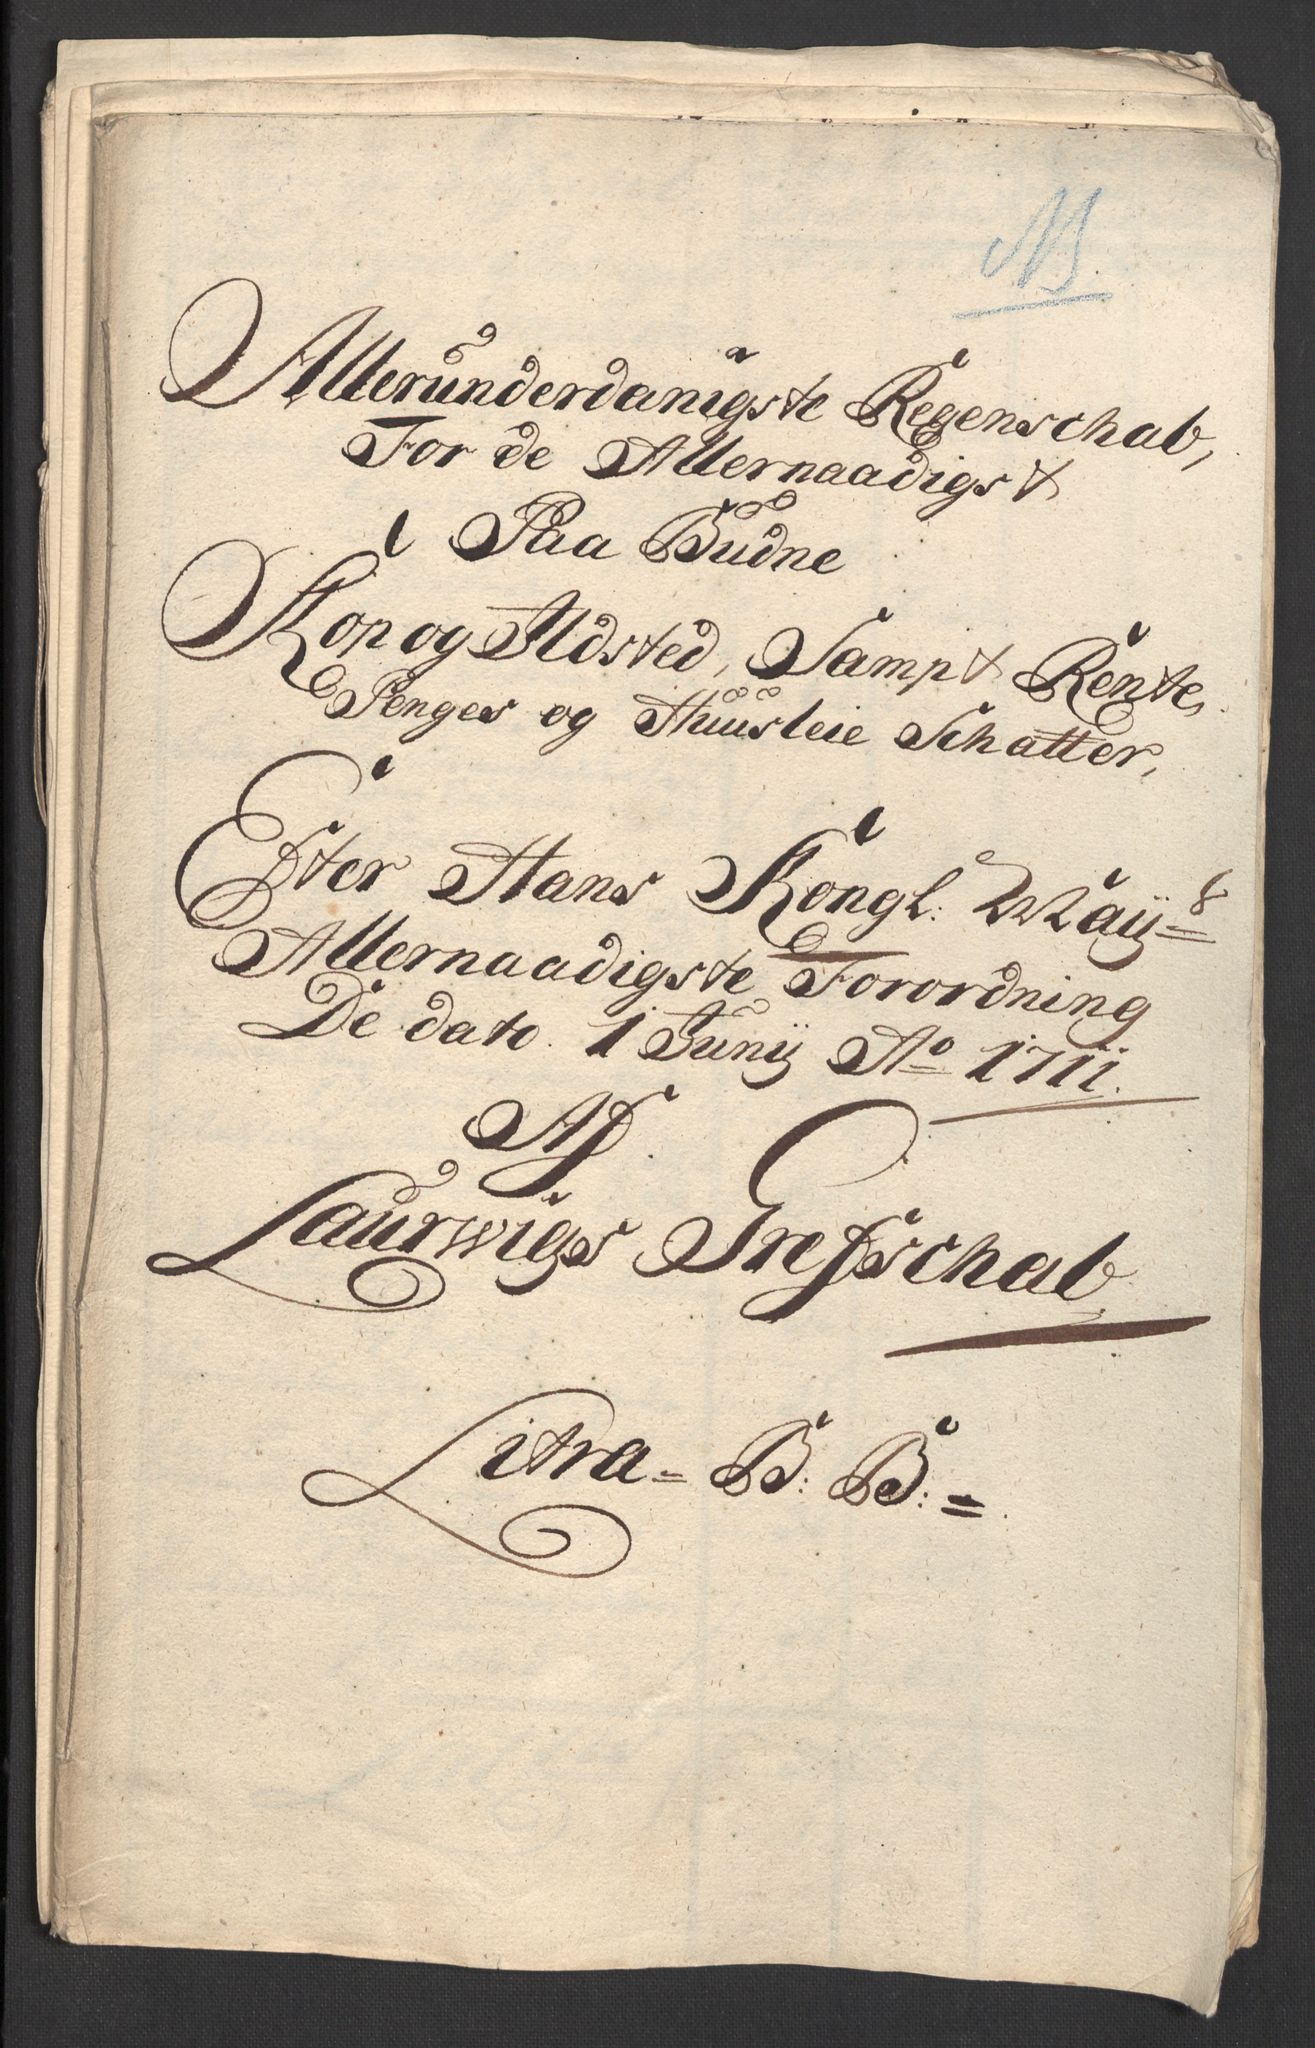 Allerunderdanigste Regenschab,
For de Allernaadigst
Paa Budne
Kop og Ildsted, Sampt Rente,
Penges og Huusleie Schatter,
Efter Hans Kongl: Maij=
Allernaadigste Forordning
De dato. 1 Junij Ao 1711.
Af
Laurwigs Grefschab
Litra= B: B:=